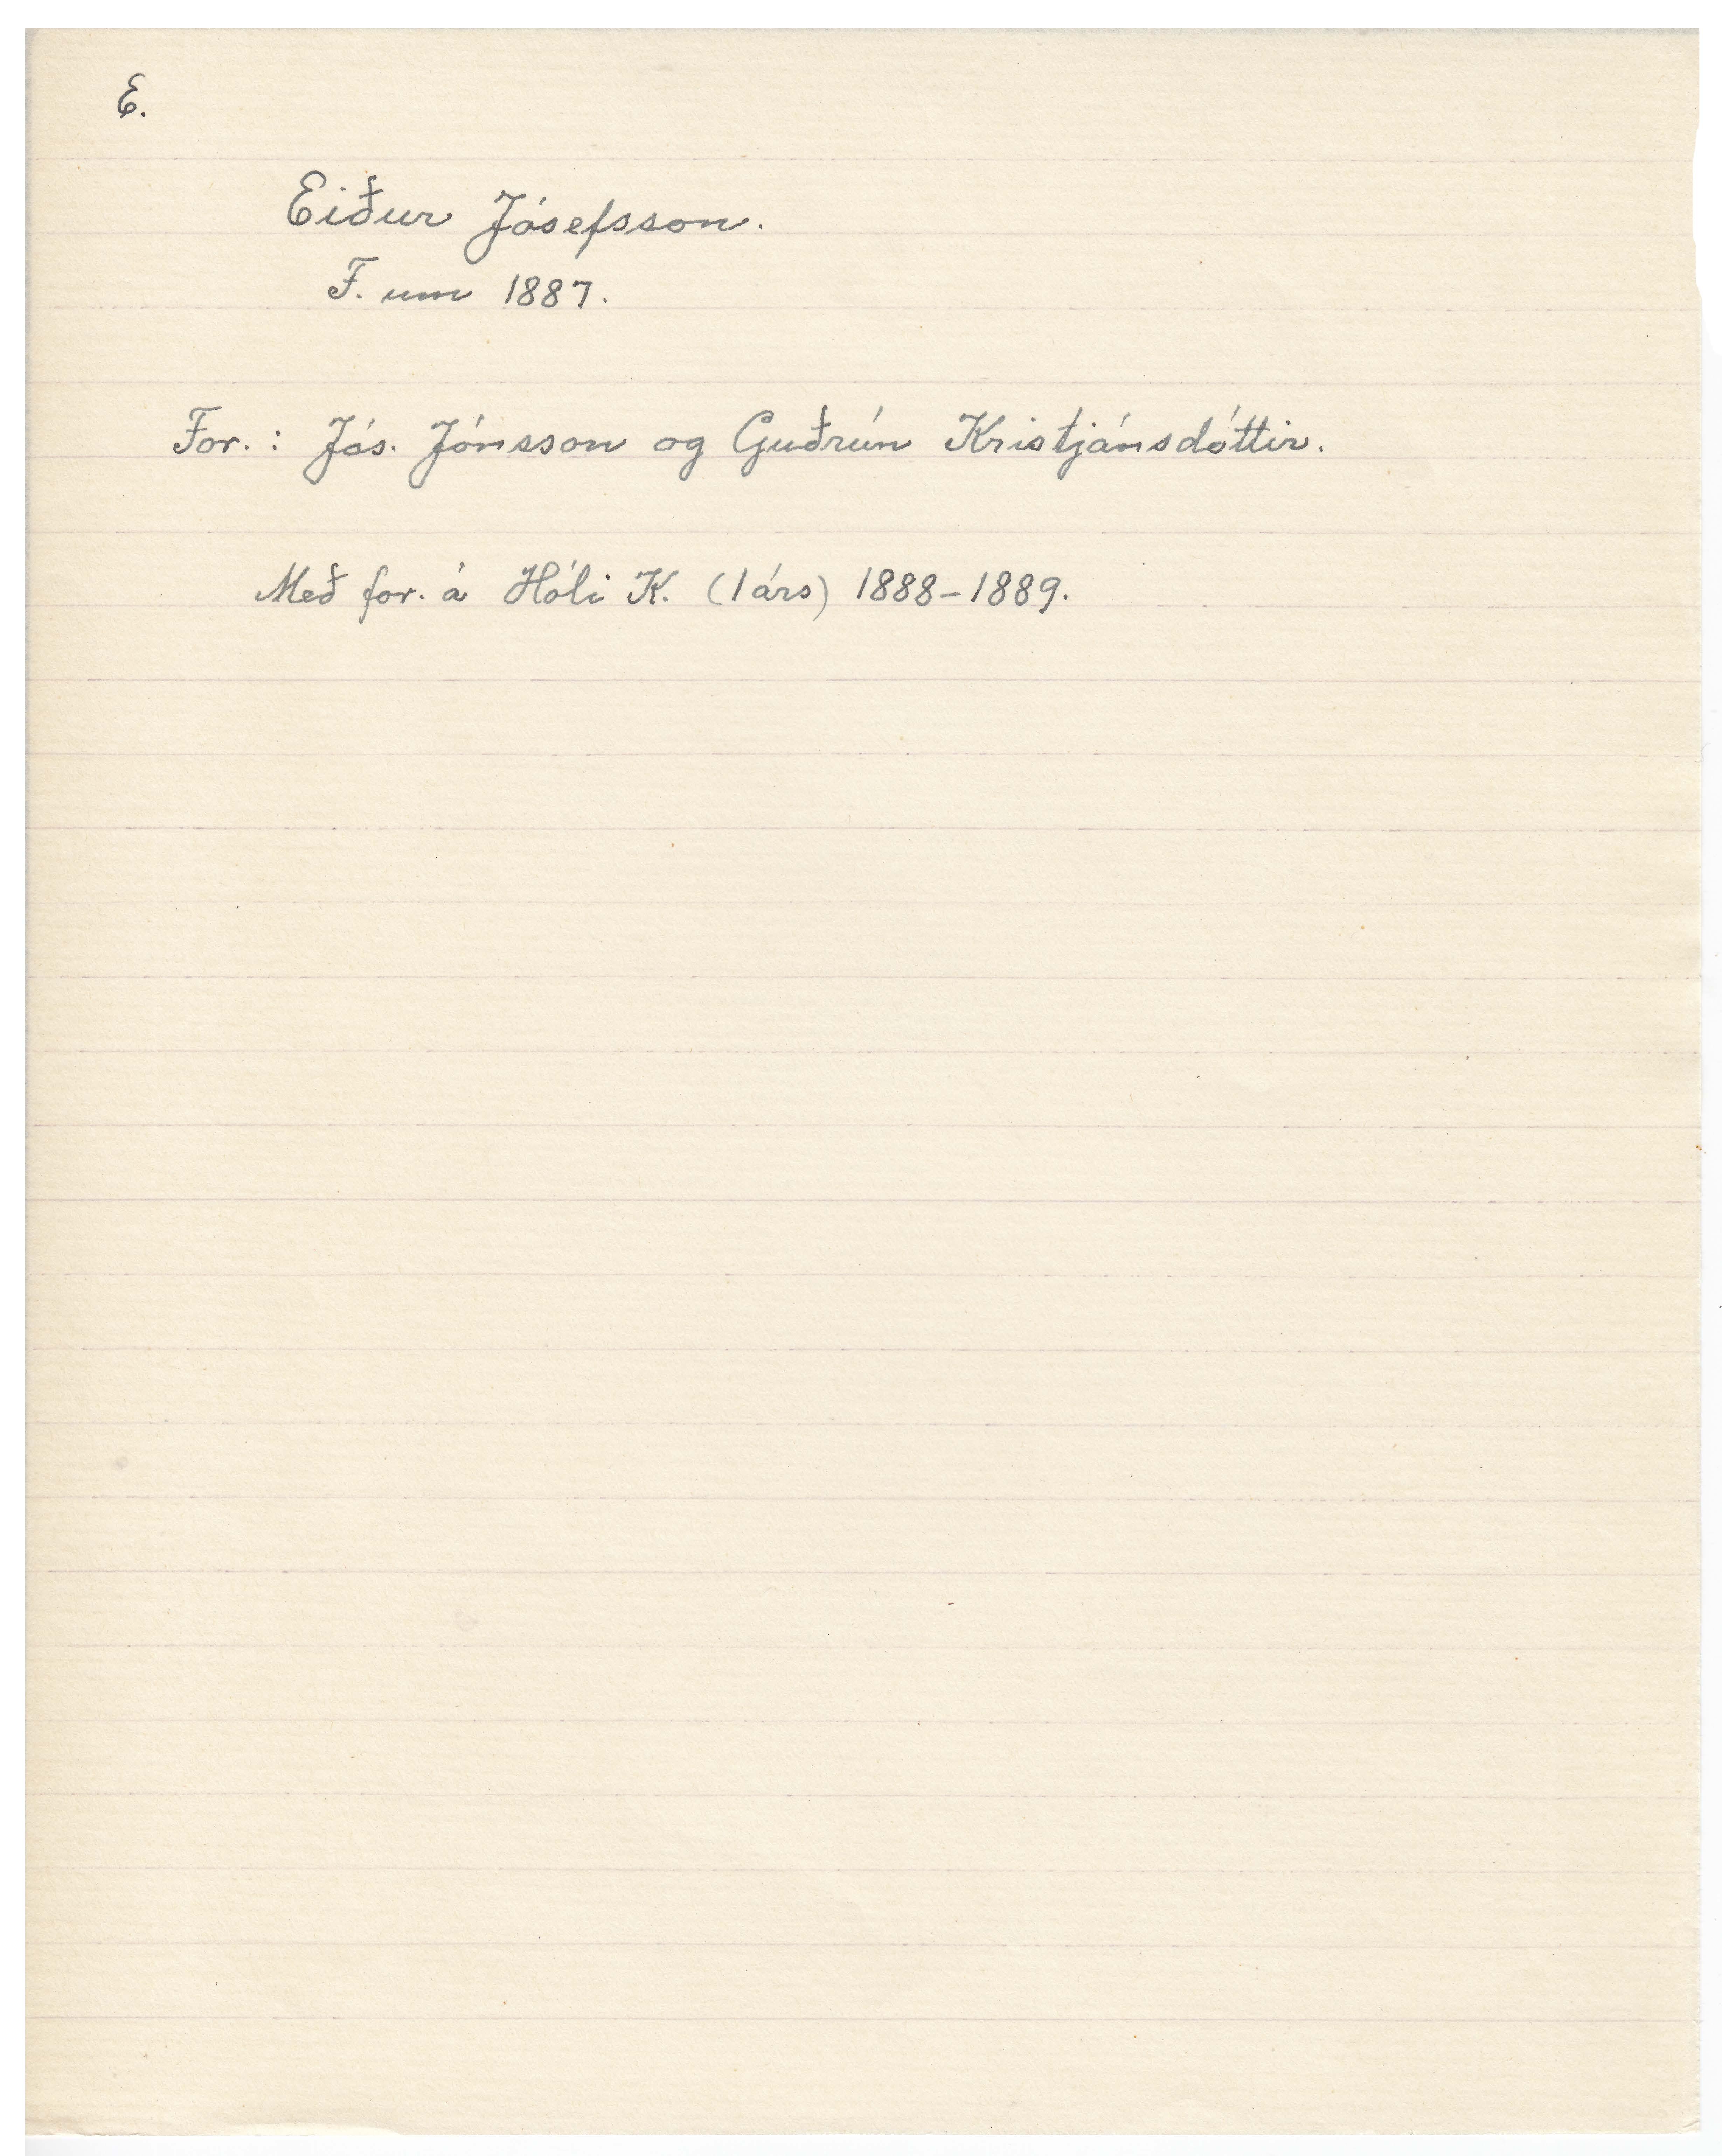 E.
Eiður Jósefsson.
F. um 1887.
For. : Jós. Jónsson og Guðrún Kristjánsdóttir.
Með for. á Hóli K. (1 árs) 1888-1889.